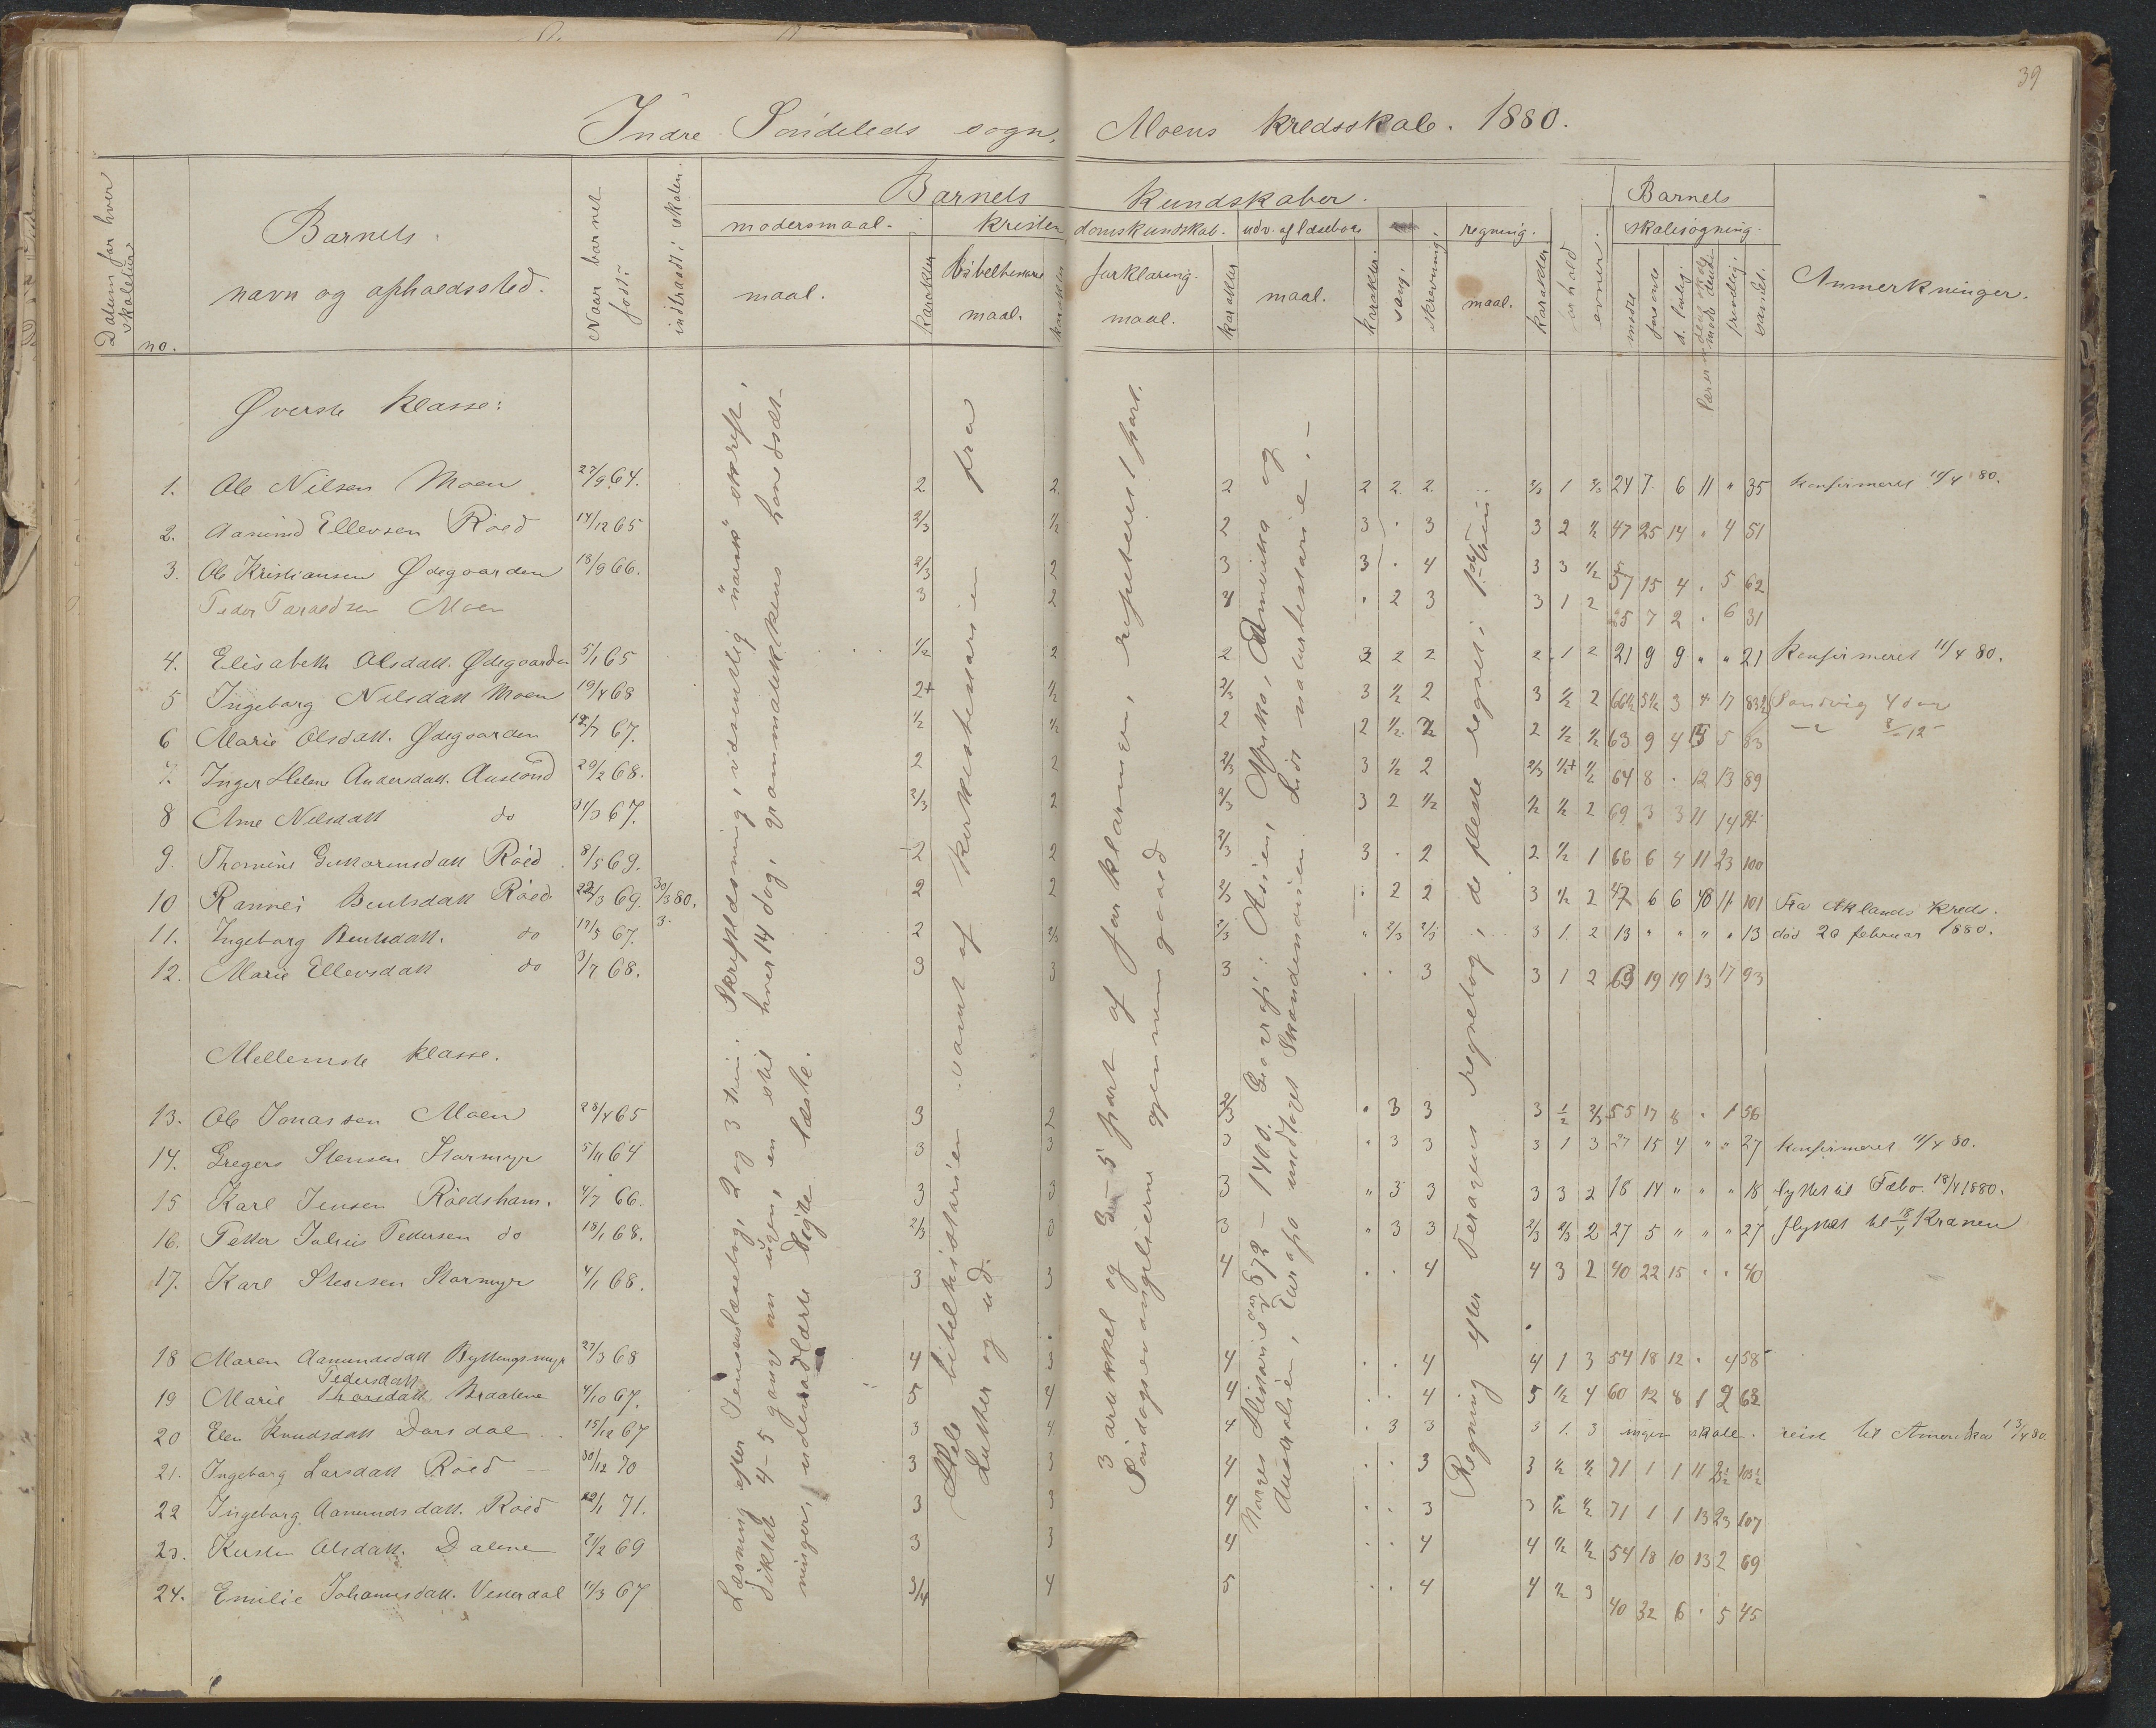 39
Indre Söndeleds sogn. Moens kredsskole. 1880.
Datum for hver skoletur
no.
Barnets navn og opholdssted.
Naar barnet födt?
indtraadt i skolen.
Barnets kundskaber.
modersmaal.
maal.
karakter
kristendomskundskab.
bibelhistorie
maal.
karakter
forklaring.
maal.
karakter
udv. af læsebog
maal.
karakter.
sang.
skrivning.
regning.
maal.
karakter
forhold
evner.
Barnets skolesögning.
mödte
forsömte
d. lovlig.
frivillig.
samlet.
Anmerkninger.
Øverste klasse:
1. Ole Nilsen Moen 27/9 64. 2 2 2 2 2 2 2/3 1 2/3 24 7 6 11 " 35 Konfirmeret 11/4 80.
2. Aanund Ellevsen Röed 14/12 65 2/3 1/2 2 3 . 3 3 2 1/2 47 25 14 " 4 51
3. Ole Kristiansen Ødegaarden 18/9 66. 2/3 2 3 3 . 4 3 3 1/2 57 15 4 . 5 62
Peder Taraldsen Moen 3 2 . 2 3 3 1 2 25 7 2 . 6 31
4. Elisabeth Olsdatt. Ødegaarden 5/1 65 1/2 2 2 3 2 2 2 1 2 21 9 9 " " 21 Konfirmeret 11/4 80.
5 Ingeborg Nilsdatt Moen 19/4 68 2+ 1/2 2/3 3 1/2 2 3 1/2 2 66½ 5½ 3 17 83½ Sandvig 4 dar
6 Marie Olsdatt. Ødegaarden 12/7 67. 1/2 1/2 2 2 1/2 2 2 1/2 1/2 63 9 4 15 5 83
7. Inger Helene Andersdatt. Auslönd 29/2 68. 2 2 2/3 3 1/2 2 2/3 1/2+ 1/2 64 8 . 12 13 89
8 Ane Nilsdatt do 31/3 67. 2/3 2 2/3 3 2 1/2 1/2 1/2 2 69 3 3 11 14 94
9. Thomine Guttormsdatt Röed 8/5 69. 2 2 2/3 3 . 2 2 1/2 1 66 6 4 11 23 100
10 Rannei Bentsdatt Röed 22/3 69. 30/3 80. 2 2 2/3 . 2 2 3 1/2 2 47 6 6 101 Fra Aklands Kreds.
11. Ingeborg Bentsdatt. do 17/5 67. 3. 2 2/3 2/3 " 2/3 2/3 3 1 2 13 " " " " 13 död 20 februar 1880.
12. Marie Ellevsdatt do 3/7 68. 3 3 3 . . 3 3 1 2 63 19 19 13 17 93
Mellemste klasse.
13. Ole Jonassen Moen 28/4 65 3 2 2/3 . 3 3 3 1/2 2/3 55 17 8 . 1 56
14. Gregers Stensen Stormyr 5/11 64 3 3 3 " 3 3 3 1 3 27 15 4 " " 27 Konfirmeret 11/4 80.
15 Karl Jensen Röedsham. 4/7 66. 3 3 3 " 3 3 3 3 2 18 14 " " " 18 flyttet til Fæbo 18/4 1880.
16. Petter Julius Pettersen do 18/1 68. 2/3 3 3 " 3 3 2/3 2/3 2 27 5 " " " 27 flyttet til 18/4 Kranen
17. Karl Stensen Stormyr 4/1 68. 3 3 4 . . 4 4 3 2 40 22 15 . . 40
18 Maren Aanundsdatt Byttingsmyr 27/3 68 4 3 4 . . 4 4 1 3 54 18 12 . 4 58
Pedersdatt
19 Marie Thorsdatt Braatene 4/10 67. 5 4 4 . 4 5 1/2 4 60 12 8 1 2 63
20 Elen Knudsdatt Dorsdal 15/12 67 3 4 4 . 3 3 3 1 3 ingen skole. reist til Amerika 13/4 80
21. Ingeborg Larsdatt Röed 30/12 70 3 3 4 . . 3 3 1/2 1/2 71 1 1 11 105½
22 Ingeborg Aanundsdatt. Röed 22/1 71. 3 3 4 . . 3 3 1/2 1/2 71 1 1 13 23 107
23. Kirsten Olsdatt. Dalene 21/2 69 3 3 4 . . 4 4 1/2 1/2 54 18 10 13 2 69
24. Emilie Johannesdatt. Vetterdal 11/3 67 3/4 4 5 . . 4 4 2 3 40 32 6 . 5 45
Læsning efter Jensens læsebog, 2 og 3 trin. Skriftlæsning, vidsentlig "norsk" skrift,
diktat 4-5 gang om ugen, en stil hver 14 dag, grammatikkens hovedsæt-
ninger, udenadlærte digte læste.
Hele bibelhistorien samt af kirkehistorien fra
Luther og ud.
3 artikkel og 3-5 part af forklarinen, repeteret part.
Söndagsevangelierne gjennemgaaed
Norges Historie over 872 - 1400. Geografi: Asien, Afrika, Amerika og
Australien, Europa undtaget Skandinavien. Lidt naturhistorie. -
Regning efter Teraxus regnebog, de fleste regnet i 1ste trin.